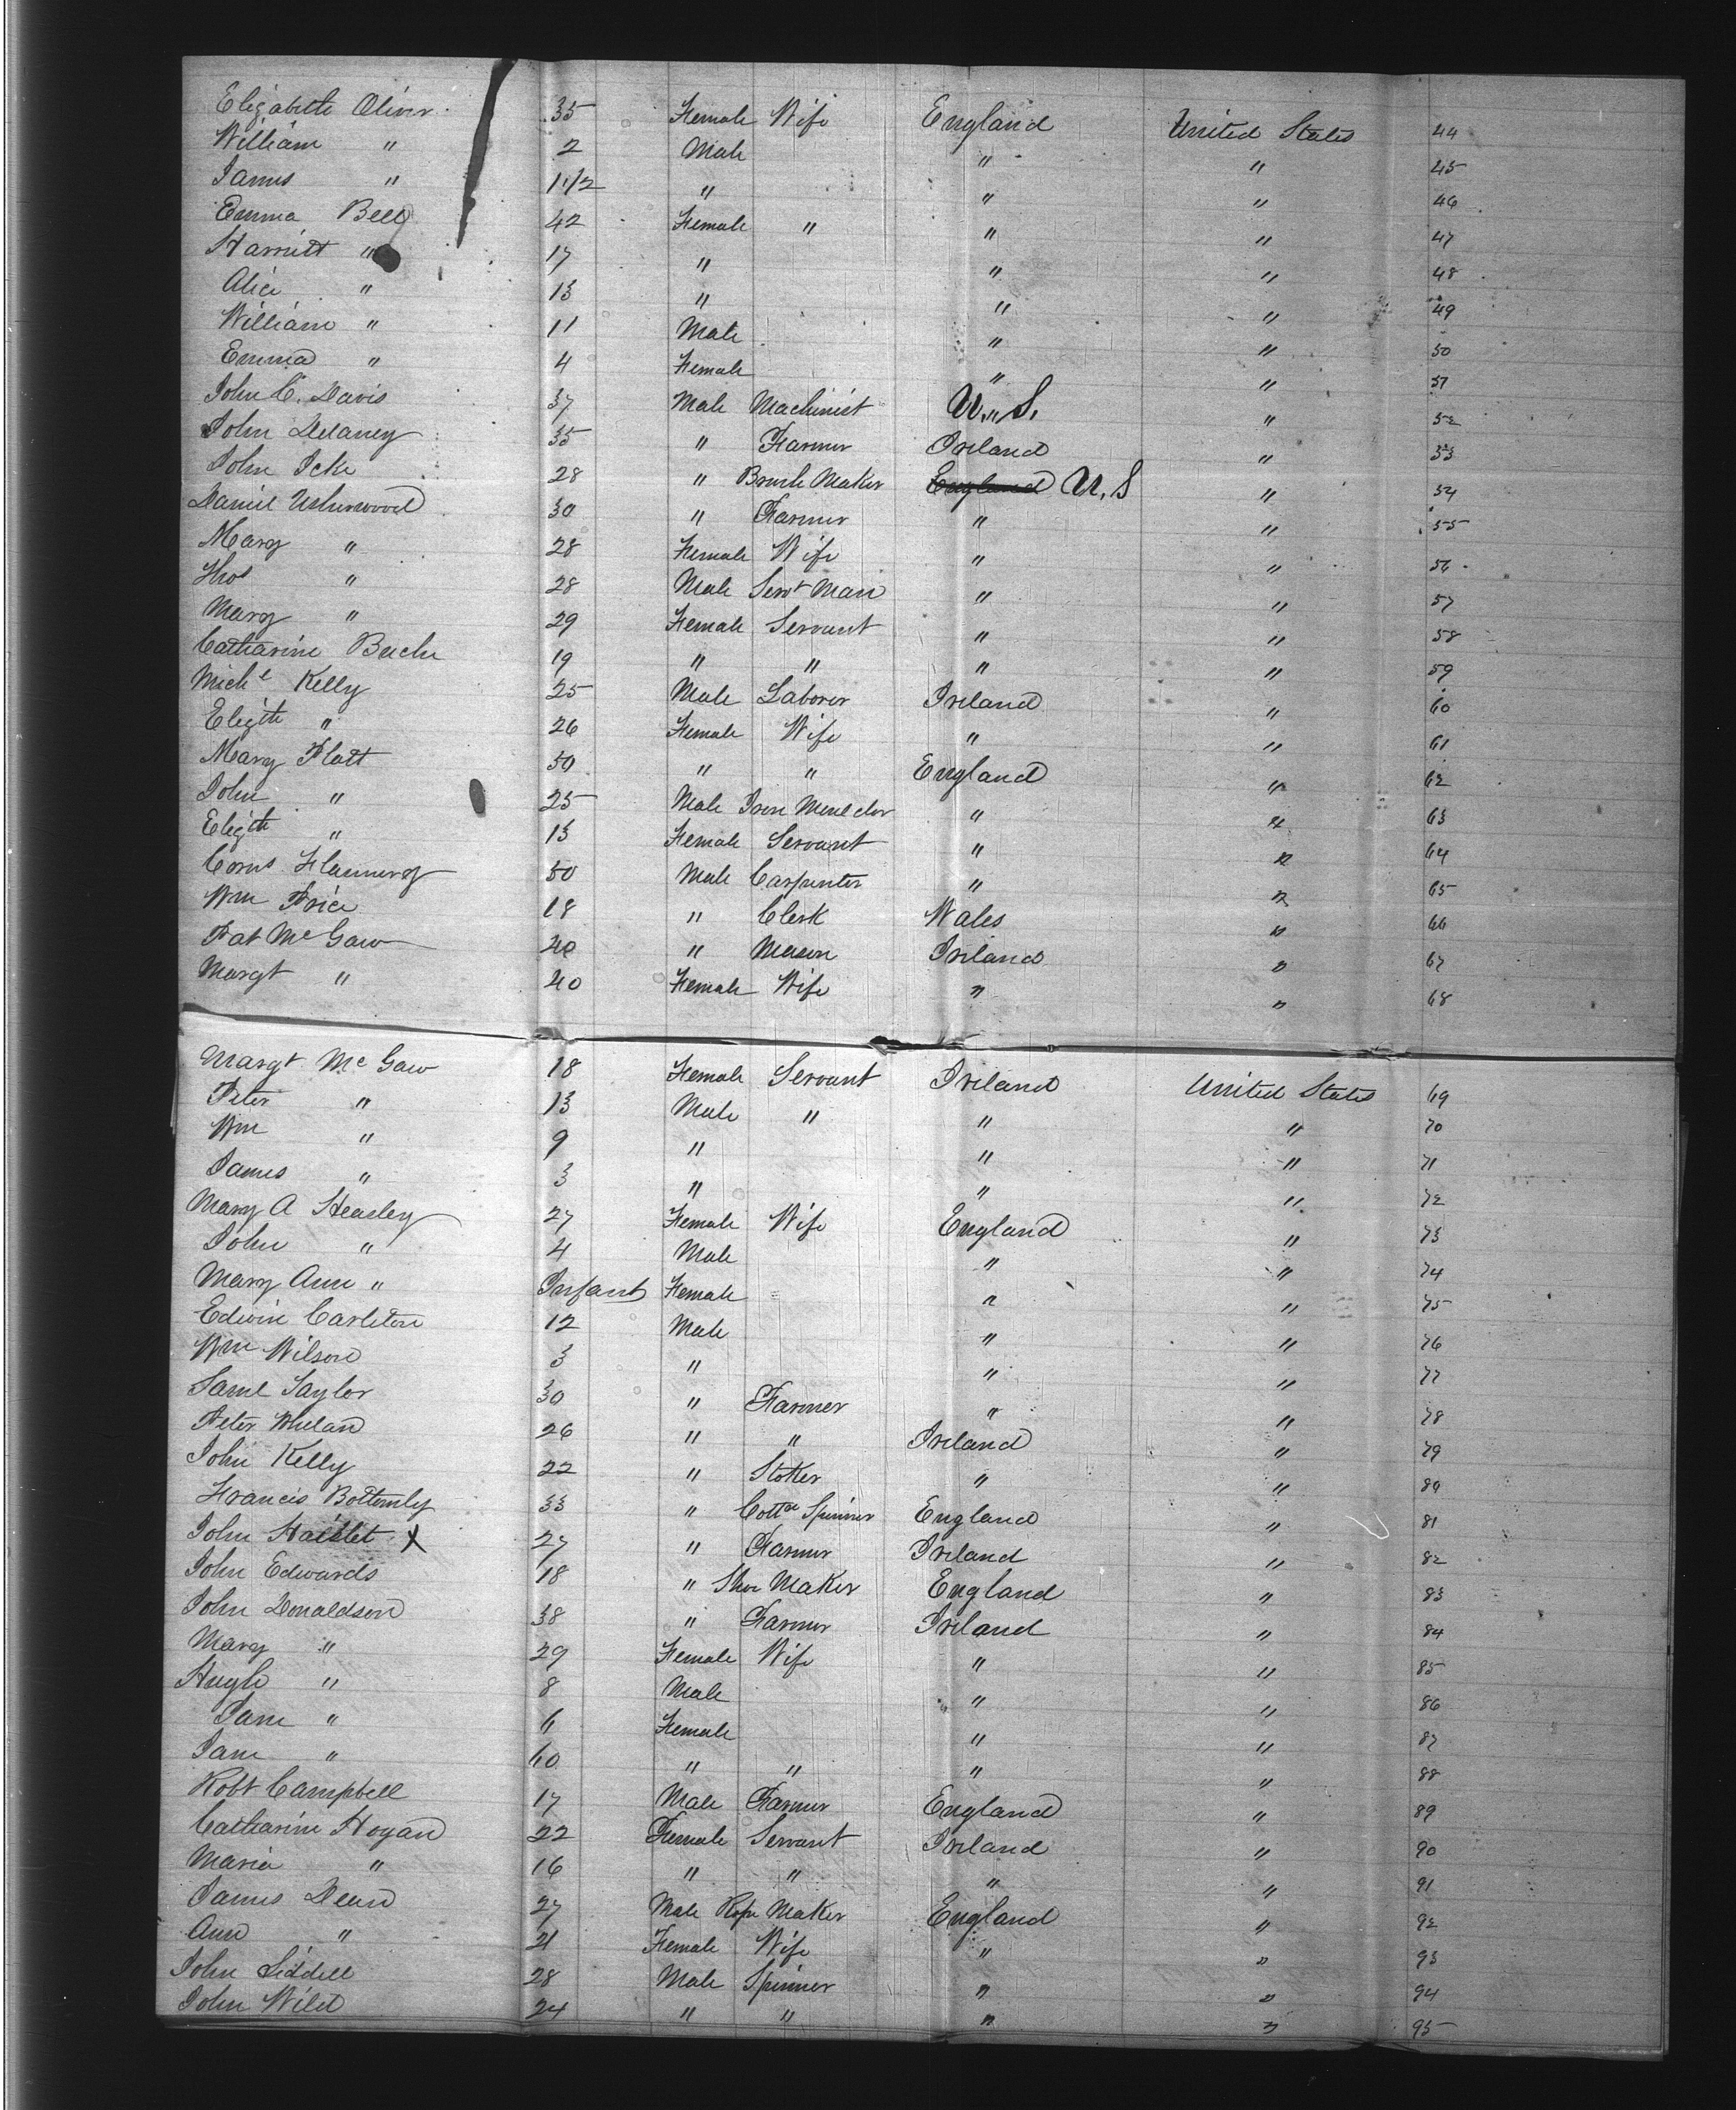 Elizabeth Oliver 35 Female Wife England United States 44
William " 2 Male " " 45
James " 1 1/2 " " " 46
Emma Bell 42 Female " " " 47
Harriett " 17 " " " 48
Alice " 13 " " " 49
William " 11 Male " " 50
Emma " 4 Female " " 51
John C. Davis 37 Male Machinist U.S. " 52
John Delaney 35 " Farmer Ireland " 53
John Icke 28 " Brush Maker England U.S " 54
Daniel Usherwood 30 " Farmer " " 55
Mary " 28 Female Wife " " 56
Thos " 28 Male Servt Man " " 57
Mary " 29 Female Servant " " 58
Catharine 19 " " " " 59
Michl Kelly 25 Male Laborer Ireland " 60
Elizth " 26 Female Wife " " 61
Mary Platt 50 " " England " 62
John " 25 Male Iron " " 63
Elizth " 13 Female Servant " " 64
Corns Flannery 50 Male Carpenter " " 65
Wm Price 18 " Clerk Wales " 66
Pat McGaw 40 " Mason Ireland " 67
Margt " 40 Female Wife " " 68
Margt McGaw 18 Female Servant Ireland United States 69
Peter " 13 Male " " " 70
Wm " 9 " " " 71
James " 3 " " " 72
Mary A Heasley 27 Female Wife England " 73
John " 4 Male " " 74
Mary Ann " Infant Female " " 75
Edwin Carleton 12 Male " " 76
Wm Wilson 3 " " " 77
Saml Taylor 30 " Farmer " " 78
Peter Whelan 26 " " Ireland " 79
John Kelly 22 " Stoker " " 80
Francis Bottomly 33 " Cottn Spinner England " 81
John Haislet X 27 " Farmer Ireland " 82
John Edwards 18 " Shoe Maker England " 83
John Donaldson 38 " Farmer Ireland " 84
Mary " 29 Female Wife " " 85
Hugh " 8 Male " " 86
Jane " 6 Female " " 87
Jane " 60 " " " " 88
Robt Campbell 17 Male Farmer England " 89
Catharine Hogan 22 Female Servant Ireland " 90
Maria " 16 " " " " 91
James Dean 27 Male Rope Maker England " 92
Ann " 21 Female Wife " " 93
John Liddell 28 Male Spinner " " 94
John Wild 24 " " " " 95